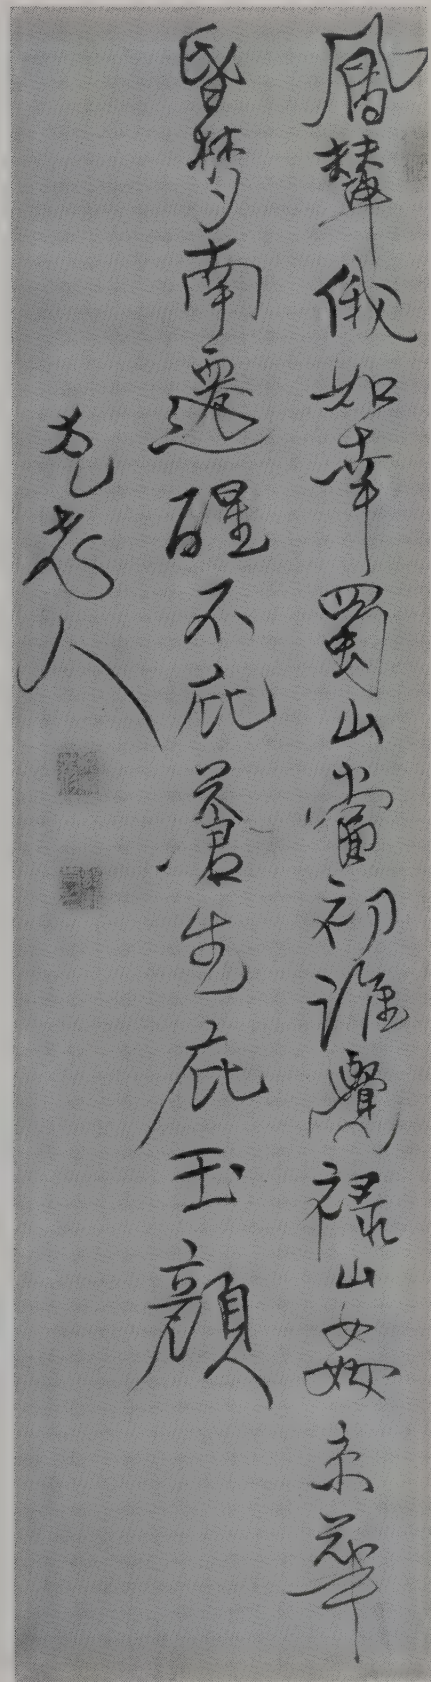 鳳輦俄如幸蜀山當初誰覺祿山姦京華
昏夢南遷醒不庇蒼生庇玉顏
老人